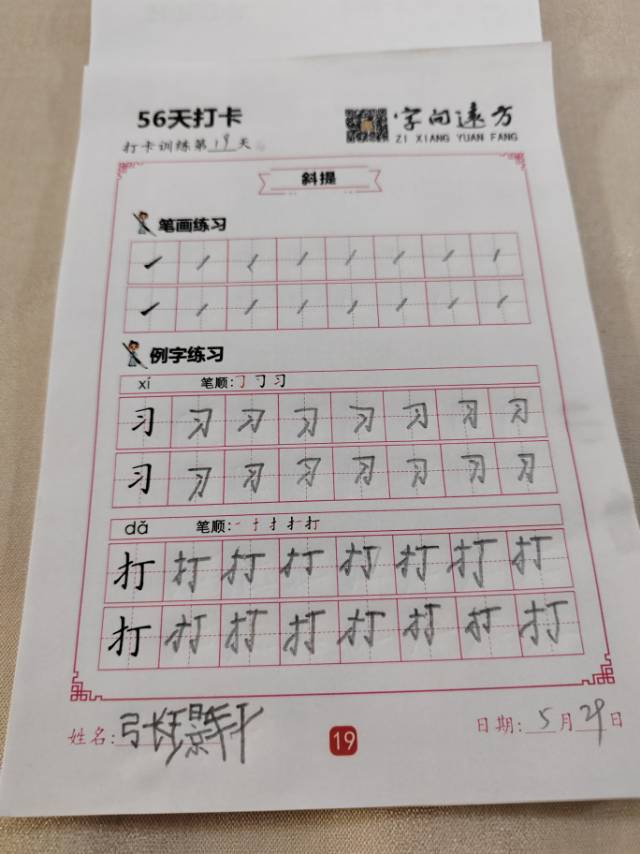 56天打卡
字向远方
ZI XIANG YUAN FANG
打卡训练第19天
斜提
笔画练习
例字练习
xí 笔顺:
习 习 习 习 习 习 习 习
习 习 习 习 习 习 习 习
dǎ 笔顺:
打 打 打 打 打 打 打 打
打 打 打 打 打 打 打 打
姓名:张
19
日期:5月29日